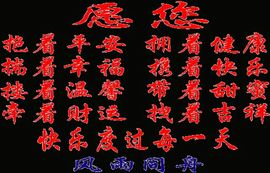 愿 您
抱着平安 拥着健康
揣着幸福 携着快乐
搂着温馨 带着甜蜜
牵着财运 拽着吉祥
快乐度过每一天
风雨同舟